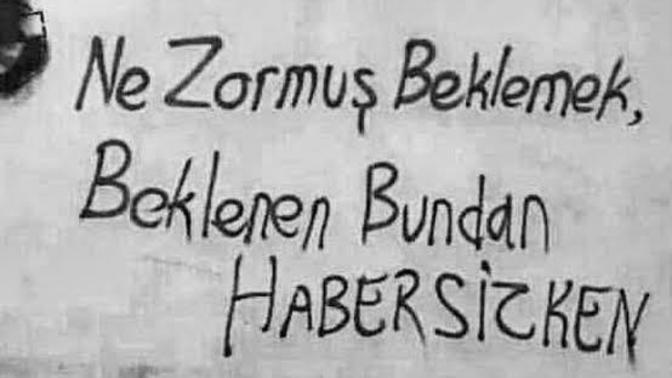 Ne Zormuş Beklemek,
Beklenen Bundan
HABERSİZKEN